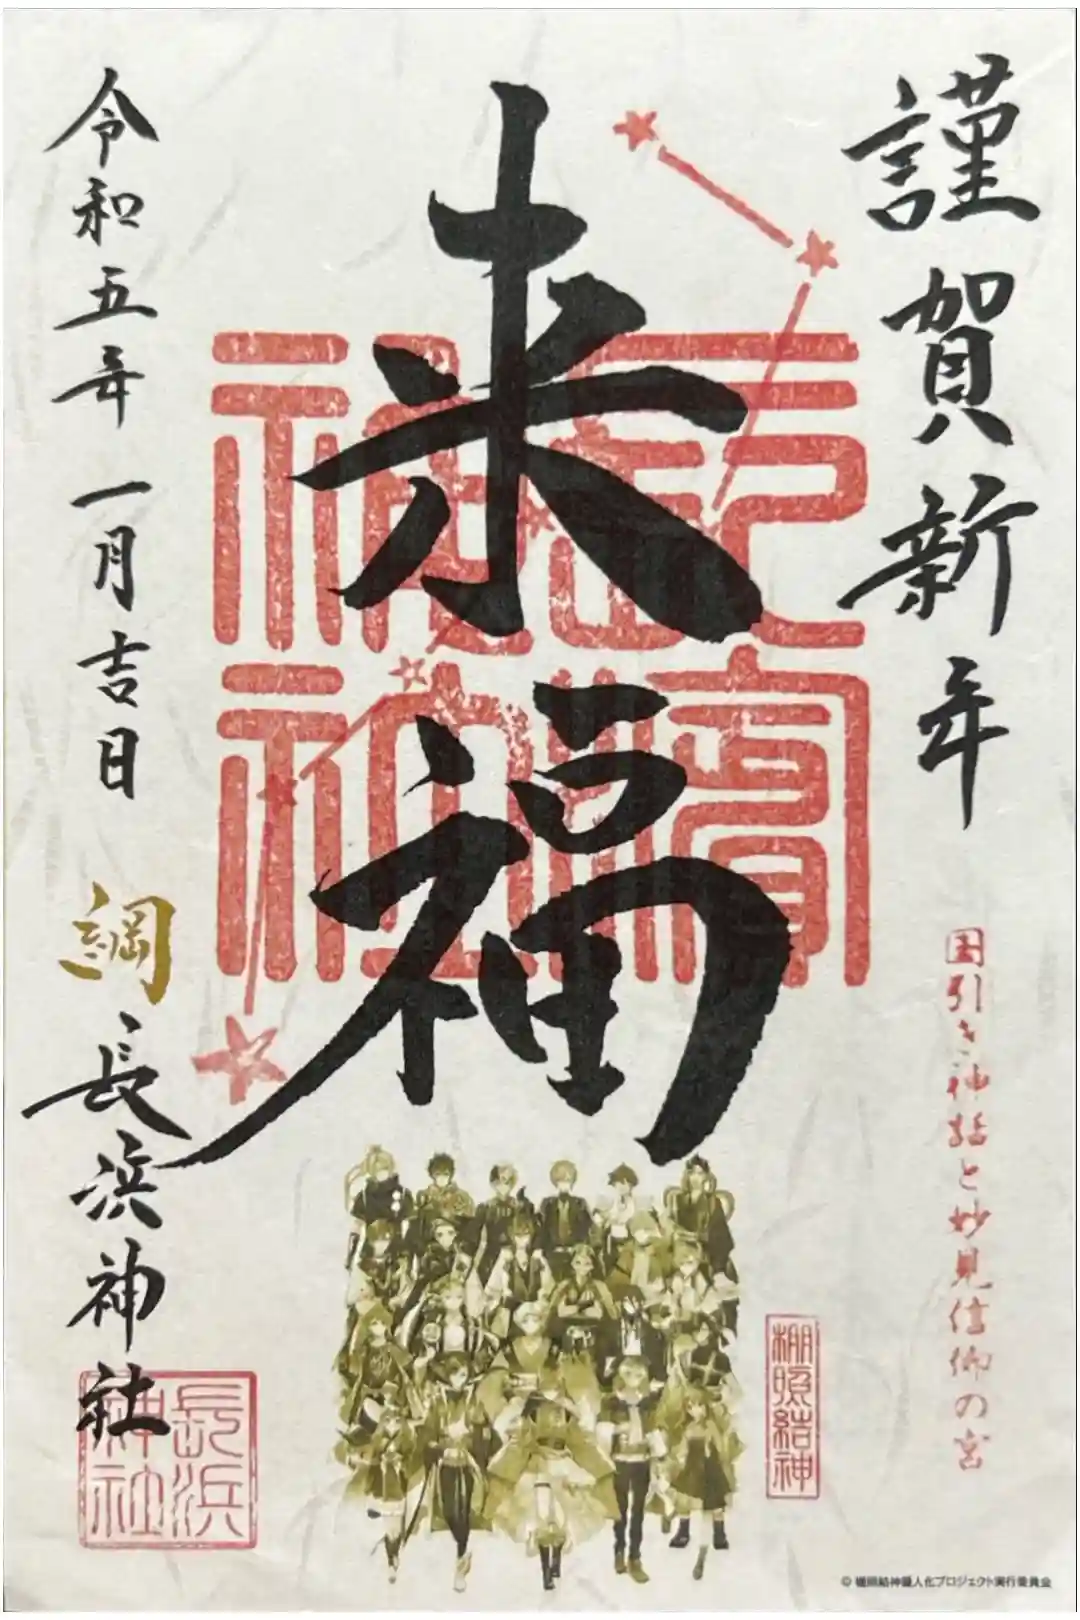 謹賀新年
国引き神話と妙見信仰の宮
来福
長浜神社
令和五年一月吉日
綱
長浜神社
長浜神社
棚照結神
© 棚照結神擬人化プロジェクト実行委員会